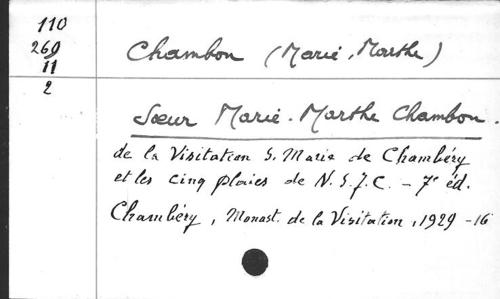 110
269
11
2
Chambon (Marie, Marthe)
Sœur Marie-Marthe Chambon.
de la Visitation S. Marie de Chambéry
et les cinq plaies de N.S.J.C. – 7e éd.
Chambéry, Monast. de la Visitation, 1929 -16